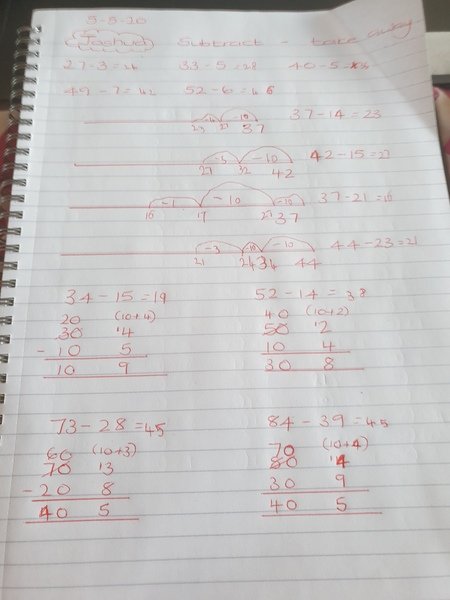 5-5-20
Joshua Subtract - take away
27-3=24 33-5=28 40-5=
49-7=42 52-6=46
-4 -10 37-14=23
23 27 37
-5 -10 42-15=27
27 32 42
-1 -10 -10 37-21=16
16 17 27 37
-3 -10 -10 44-23=21
21 24 34 44
34-15=19 52-14=38
20 (10+4) 40 (10+2)
30 '4 50 '2
-10 5 10 4
10 9 30 8
73-28=45 84-39=45
60 (10+3) 70 (10+4)
70 '3 80 '4
-20 8 30 9
40 5 40 5